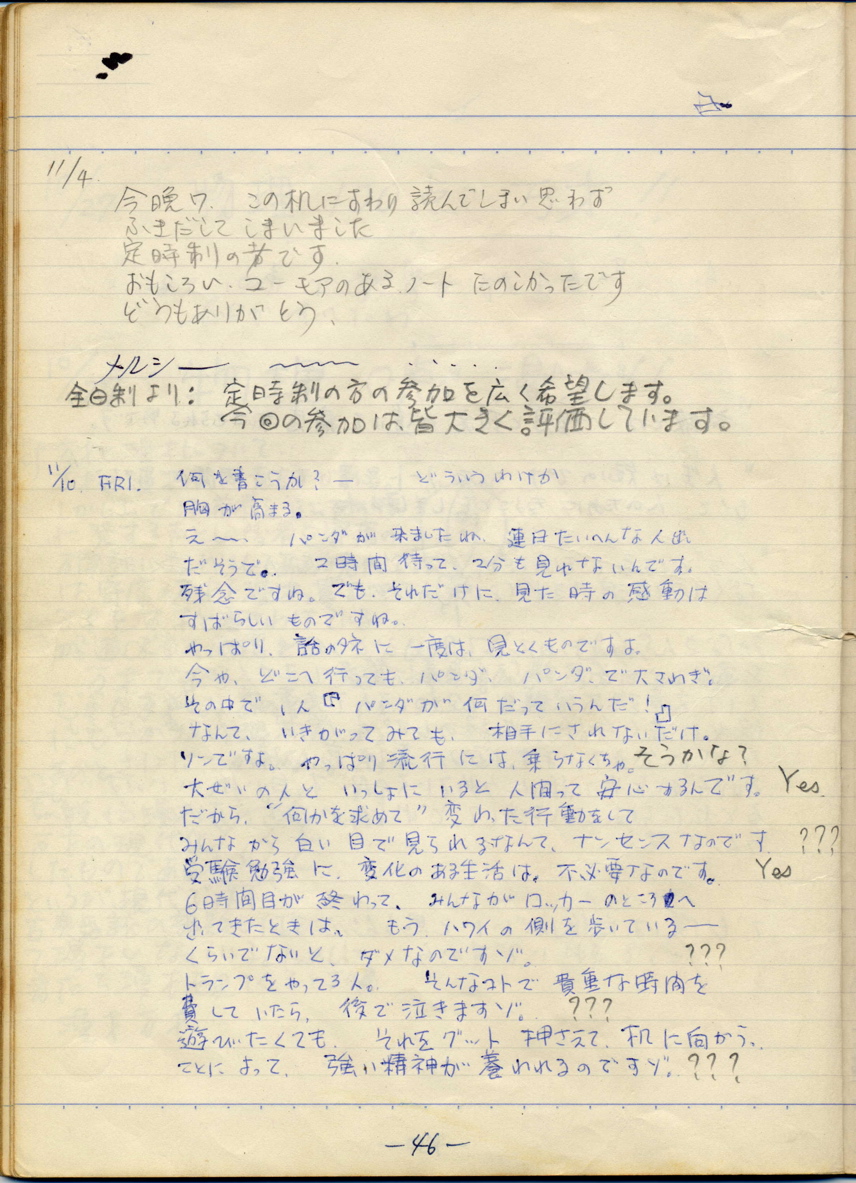 11/4
今晩ワ. この机にすわり 読んでしまい思わず
ふきだして しまいました
定時制の者です.
おもしろい.ユーモアのある.ノート たのしかったです
どうもありがとう.
メルシー 〜〜〜 . . . . .
全日制より: 定時制の方の参加を広く希望します。
今回の参加は、皆大きく評価しています。
11/10. FRI. 何を書こうか?ー どういうわけか
胸が高まる。
え〜、 パンダが来ましたね、連日たいへんな人出
だそうで。 2時間待って、2分も見れないんです。
残念ですね。でも、それだけに、見た時の感動は
すばらしいものですね。
やっぱり、話のタネに一度は、見とくものですよ。
今や、どこへ行っても、パンダ、パンダ、で大さわぎ。
その中で、1人『パンダが何だっていうんだ!』
なんて、いきがってみても、相手にされないだけ。
ソンですよ。やっぱり流行には、乗らなくちゃ。そうかな?
大ぜいの人といっしょにいると人間って安心するんです。 Yes.
だから、"何かを求めて"変わった行動をして
みんなから白い目で見られるなんて、ナンセンスなのです. ???
受験勉強に、変化のある生活は、不必要なのです。 Yes
6時間目が終わって、みんながロッカーのところへ
出てきたときは、もう、ハワイの側を歩いているー
くらいでないと、ダメなのですゾ。 ???
トランプをやってる人。そんなコトで貴重な時間を
費していたら、後で泣きますゾ。 ???
遊びたくても、それをグット押さえて、机に向かう、
ことによって、強い精神が養われるのですゾ。???
-46-